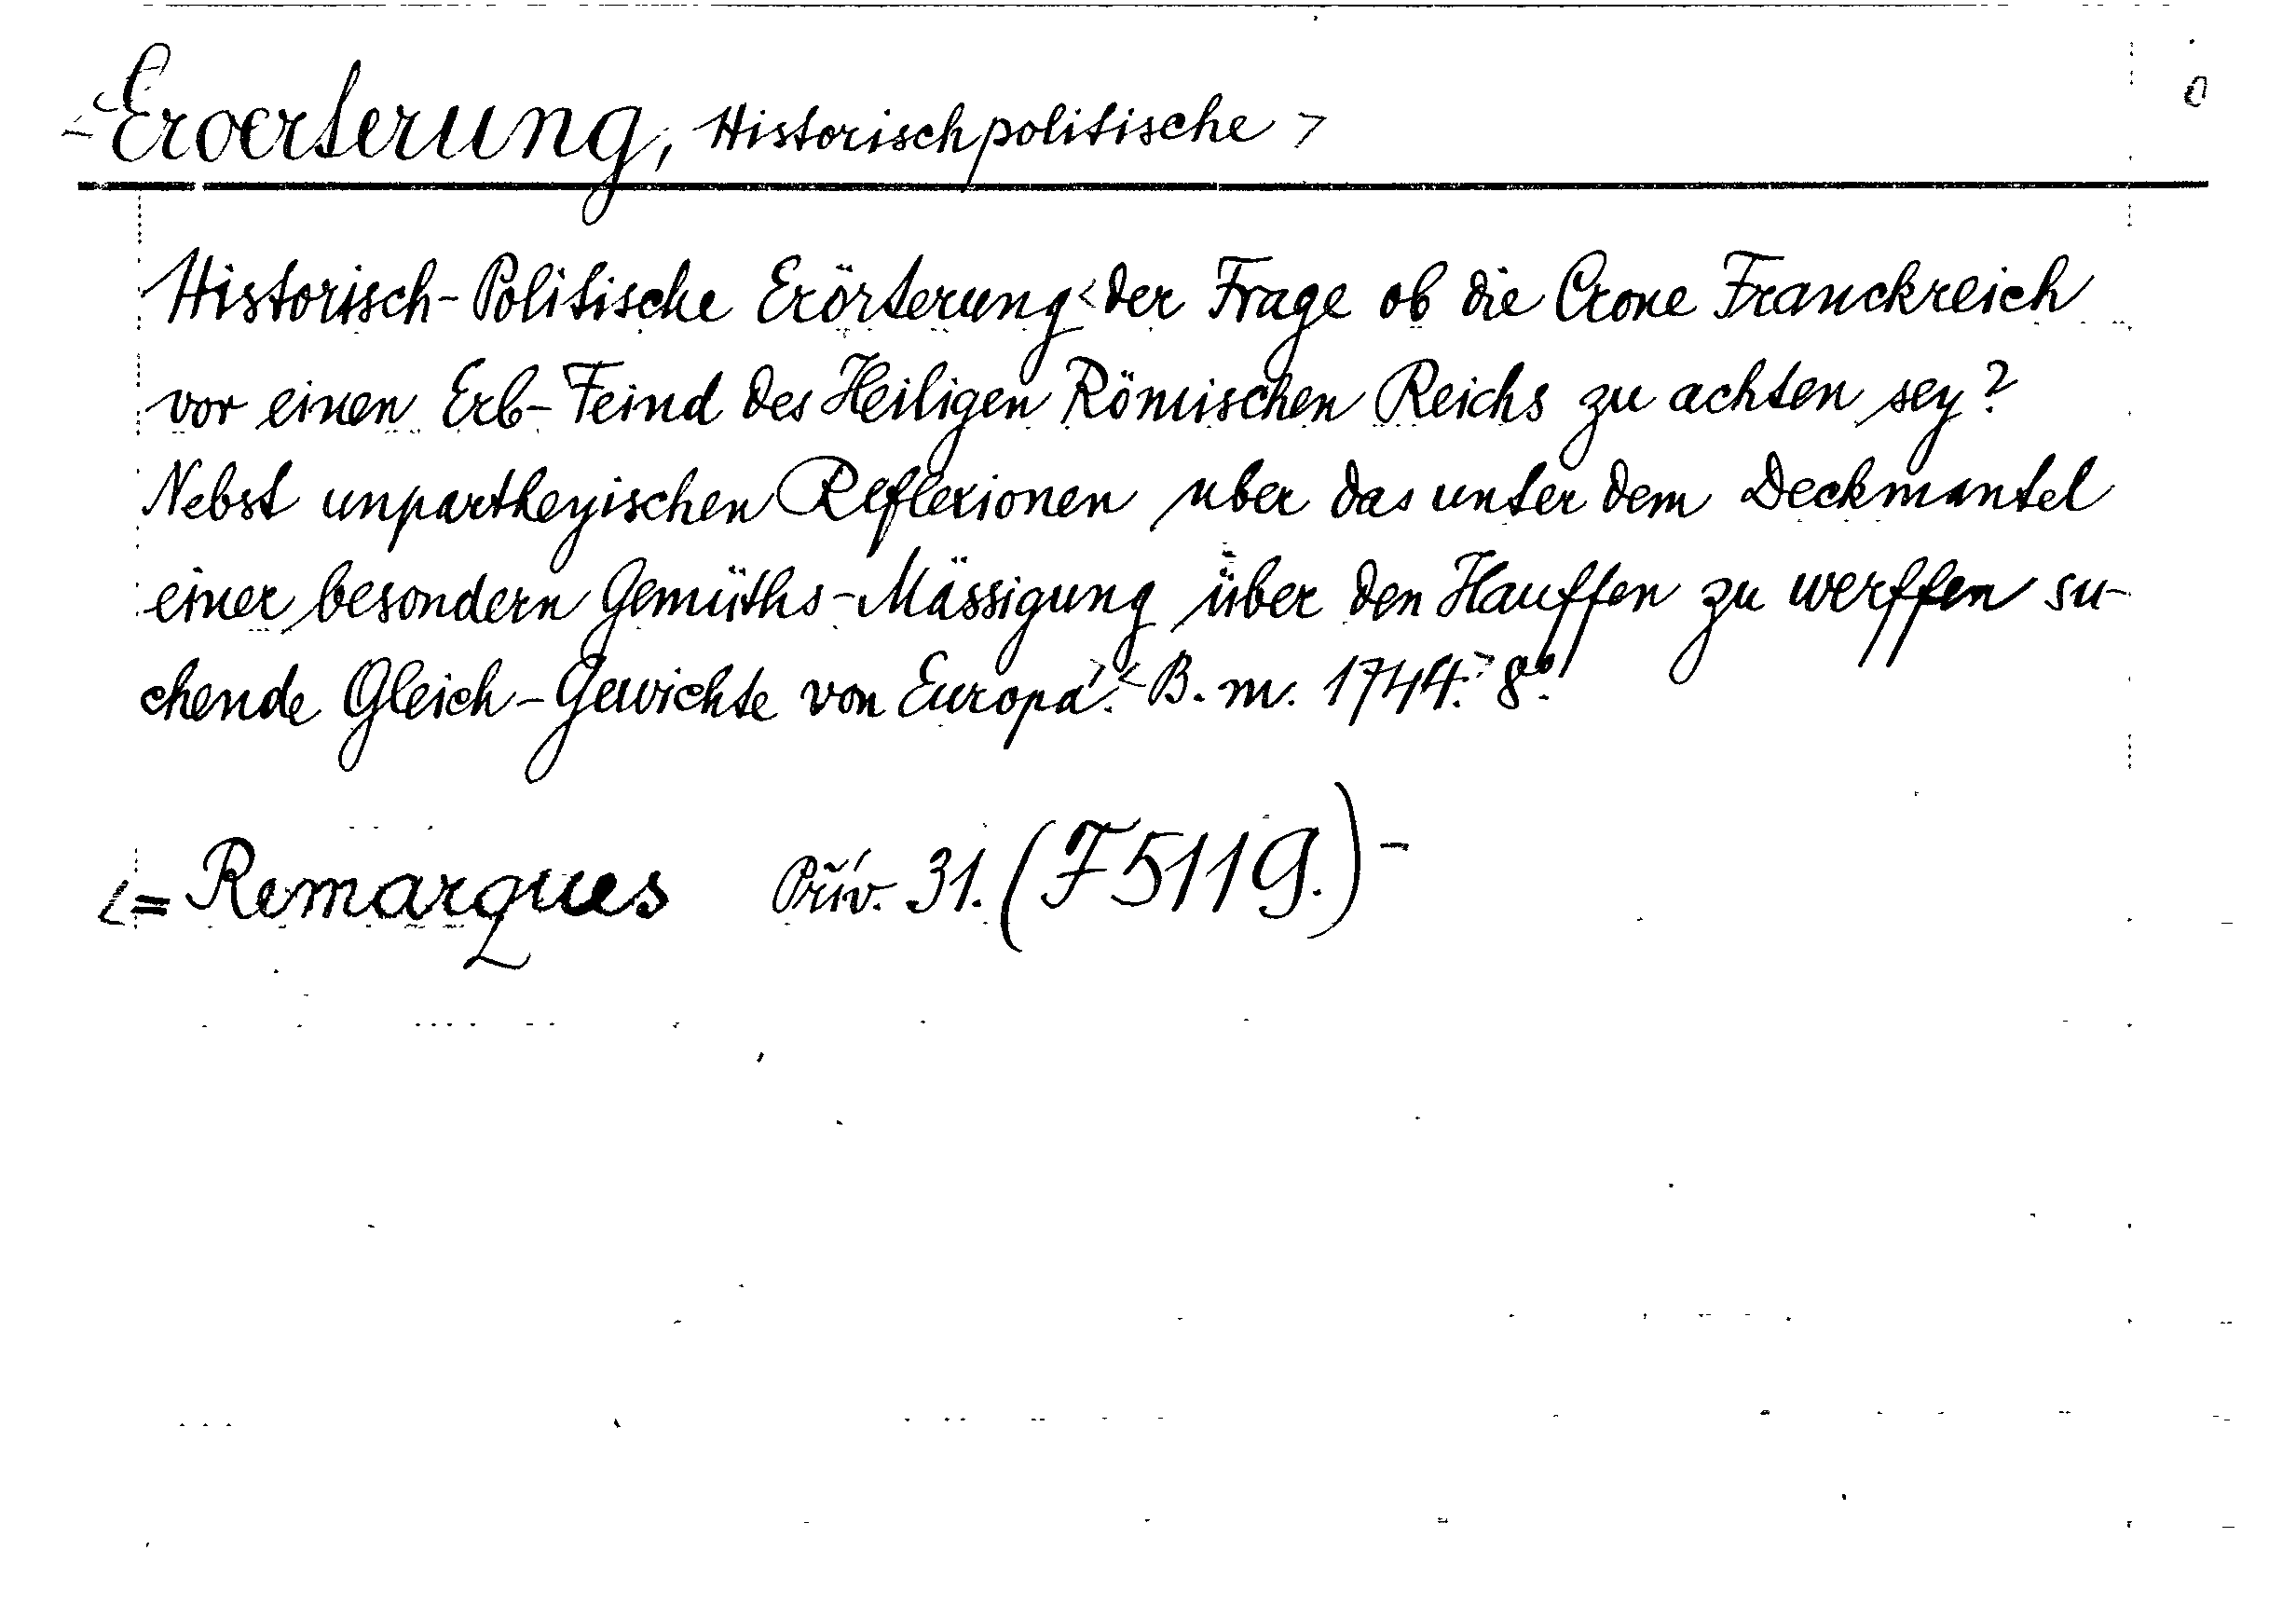 -<Eroerterung, Historischpolitische>
Historisch-Politische Erörterung <der Frage ob die Crone Franckreich
vor einen Erb-Feind des Heiligen Römischen Reichs zu achten sey?
Nebst unpartheyischen Reflexionen uber das unter dem Deckmantel
einer besondern Gemüths-Mässigung über den Hauffen zu werffen su-
chende Gleich-Gewichte von Europa>. <B. m. 1744.> 8°.
<= Remarques Přív. 31. (F 5119.)-